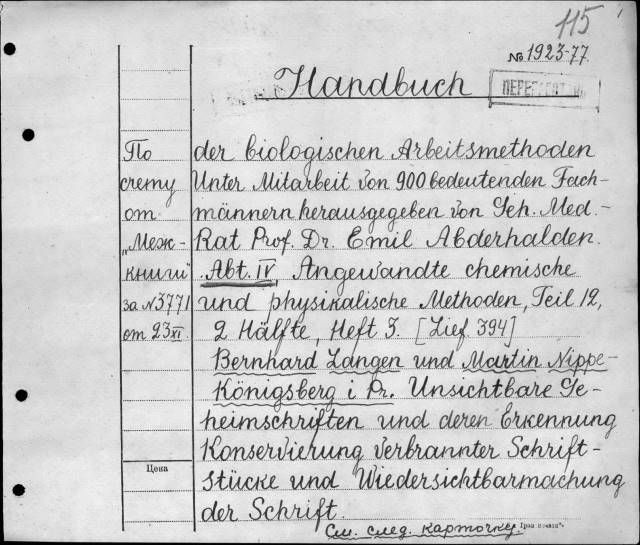 115
№ 1923-77
Handbuch
По счету от „Межкниги" за № 3771 от 23 XI.
der biologischen Arbeitsmethoden
Unter Mitarbeit von 900 bedeutenden Fach-
männern herausgegeben von Geh. Med.-
Rat Prof. Dr. Emil Abderhalden.
Abt. IV Angewandte chemische
und physikalische Methoden, Teil 12,
2 Hälfte, Heft 3. [Lief 394]
Bernhard Langen und Martin Nippe-
Königsberg i Pr. Unsichtbare Ge-
heimschriften und deren Erkennung
Konservierung verbrannter Schrift-
stücke und Wiedersichtbarmachung
der Schrift.
Цена
См. след. карточку.